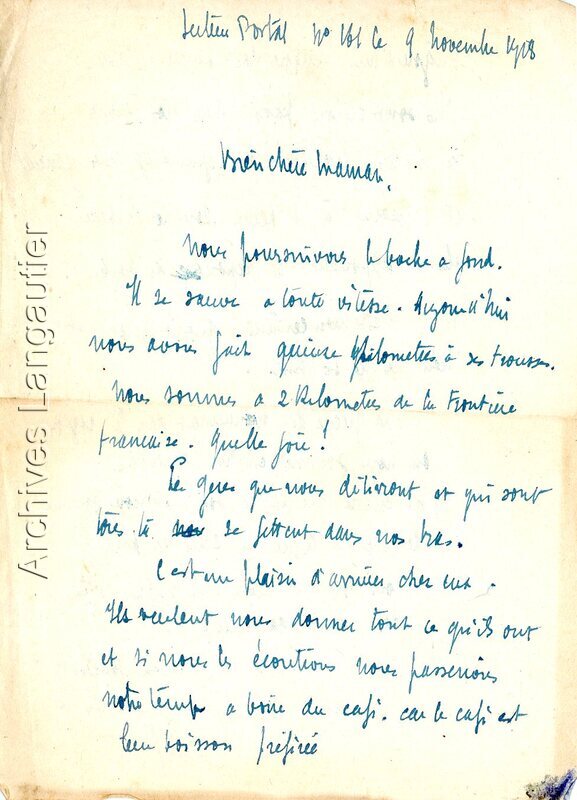 Secteur Postal No 161 le 9 novembre 1918
Bien chère Maman,
Nous poursuivons le boche a fond.
Il se sauve a toute vitesse. Aujourd'hui
nous avons fait quinze kilometres à ses trousses.
Nous sommes a 2 Kilometres de la frontiere
francaise. Quelle joie !
Les gens que nous délivrons et qui sont
tous là se jettent dans nos bras.
C'est un plaisir d'arriver chez eux.
Ils veulent nous donner tout ce qu'ils ont
et si nous les écoutions nous passerions
notre temps a boire du café. car le café est
leur boisson préférée
Archives Langautier